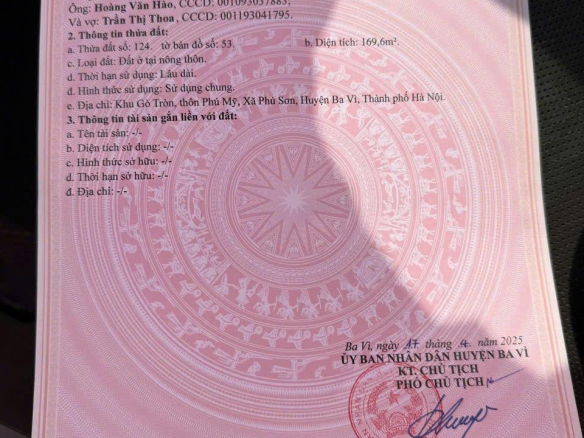 Ông: Hoàng Văn Hào, CCCD: 001093037883,
Và vợ: Trần Thị Thoa , CCCD: 001193041795.
2. Thông tin thửa đất:
a. Thửa đất số: 124. tờ bản đồ số: 53. b. Diện tích: 169,6m².
c. Loại đất: Đất ở tại nông thôn.
d. Thời hạn sử dụng: Lâu dài.
đ. Hình thức sử dụng: Sử dụng chung.
e. Địa chỉ: Khu Gò Tròn, thôn Phú Mỹ, Xã Phú Sơn, Huyện Ba Vì, Thành phố Hà Nội.
3. Thông tin tài sản gắn liền với đất:
a. Tên tài sản: -/-
b. Diện tích sử dụng: -/-
c. Hình thức sở hữu: -/-
d. Thời hạn sở hữu: -/-
đ. Địa chỉ: -/-
Ba Vì, ngày 17 tháng 4 năm 2025
ỦY BAN NHÂN DÂN HUYỆN BA VÌ
KT. CHỦ TỊCH
PHÓ CHỦ TỊCH